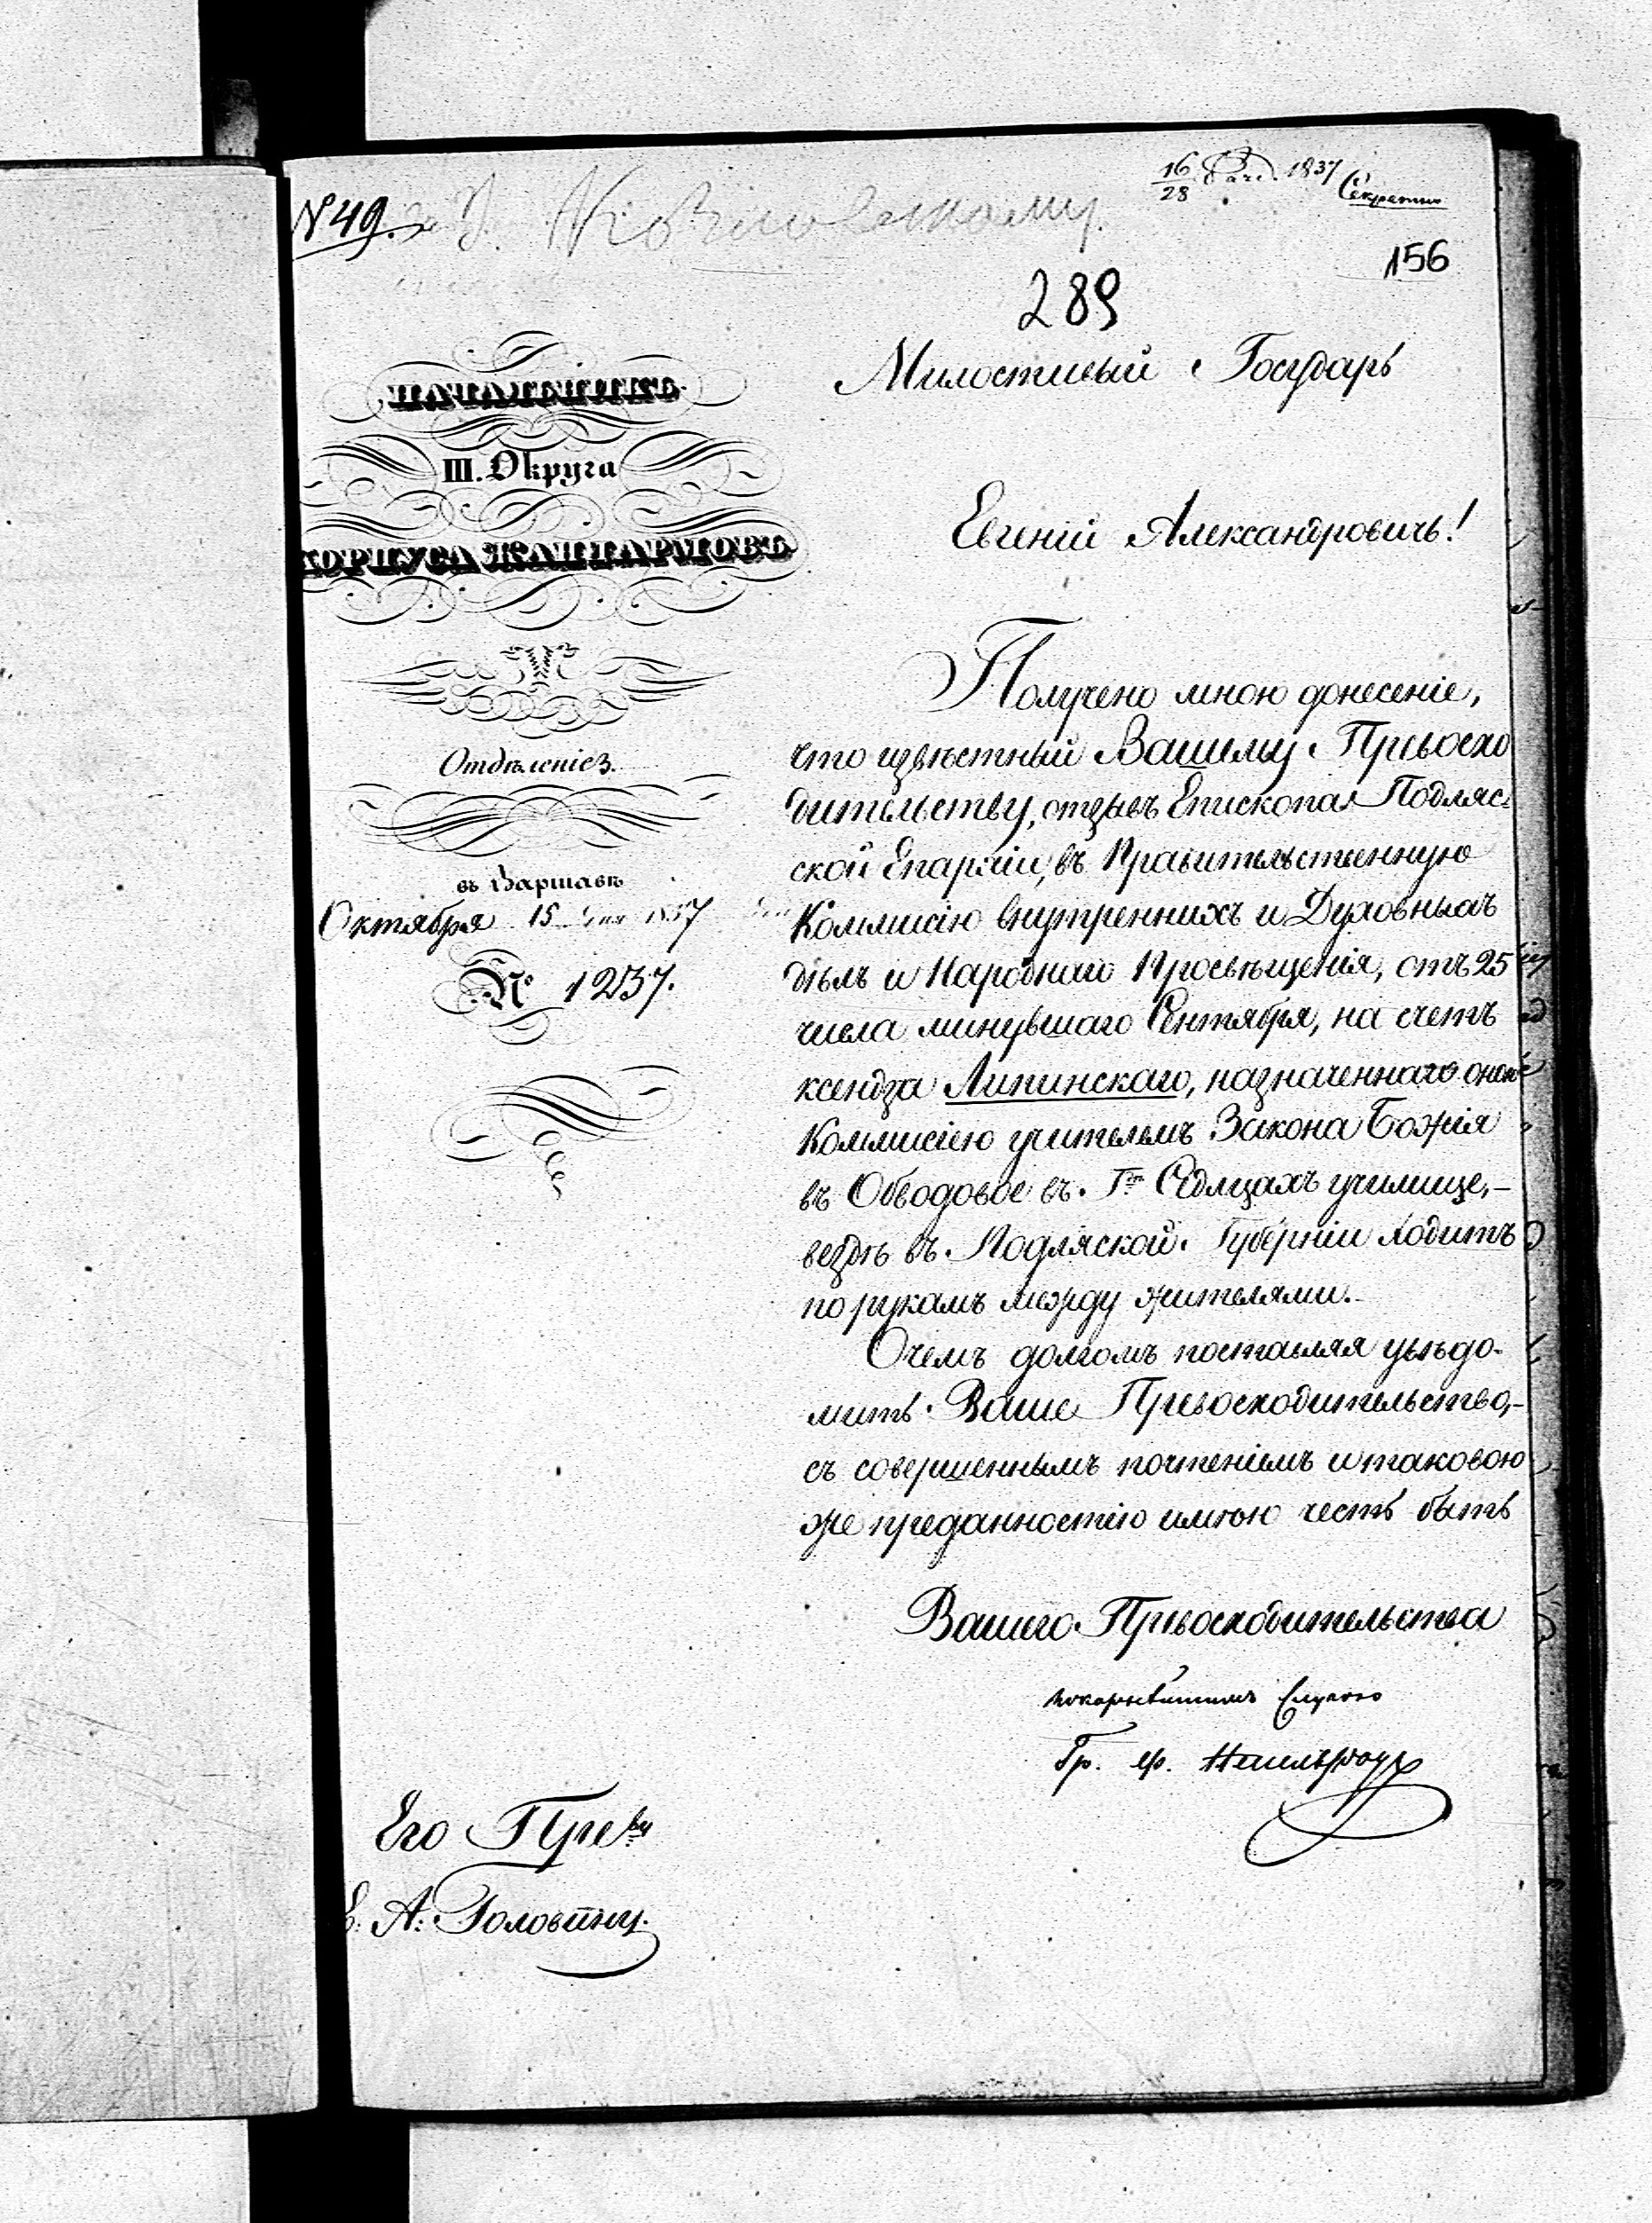 № 49.
16/28 1837
Секретно
156
289
НАЧАЛЬНИКЪ
III. Округа
КОРПУСА ЖАНДАРМОВЪ
Отдѣленіе 3.
въ Варшавѣ
Октября 15 дня 1837
№ 1237.
Милостивый Государь
Евгеній Александровичь!
Получено мною донесеніе,
что извѣстный Вашему Превосхо
дительству, отзывъ Епископа Подляс
ской Епархіи, въ Правительственную
Коммисію Внутреннихъ и Духовныхъ
дѣлъ и Народнаго Просвѣщенія, отъ 25
числа минувшаго Сентября, на счетъ
ксендза Липинскаго, назначеннаго оною
Коммисіею учителемъ Закона Божія
въ Обводовое въ Гдѣ Седлцахъ училище,-
вездѣ въ Подляской Губерніи ходитъ
по рукамъ между жителями.
О чемъ долгомъ поставляя увѣдо-
мить Ваше Превосходительство,-
съ совершеннымъ почтеніемъ и таковою
же преданностію имѣю честь быть
Вашего Превосходительства
покорнѣйшимъ слугою
Гр. Ѳ. Нессельроде
Его Прев-ву
Е: А: Головину.